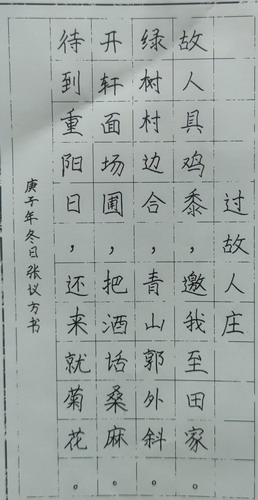 过故人庄
故人具鸡黍,邀我至田家。
绿树村边合,青山郭外斜。
开轩面场圃,把酒话桑麻。
待到重阳日,还来就菊花。
庚子年冬日张议方书